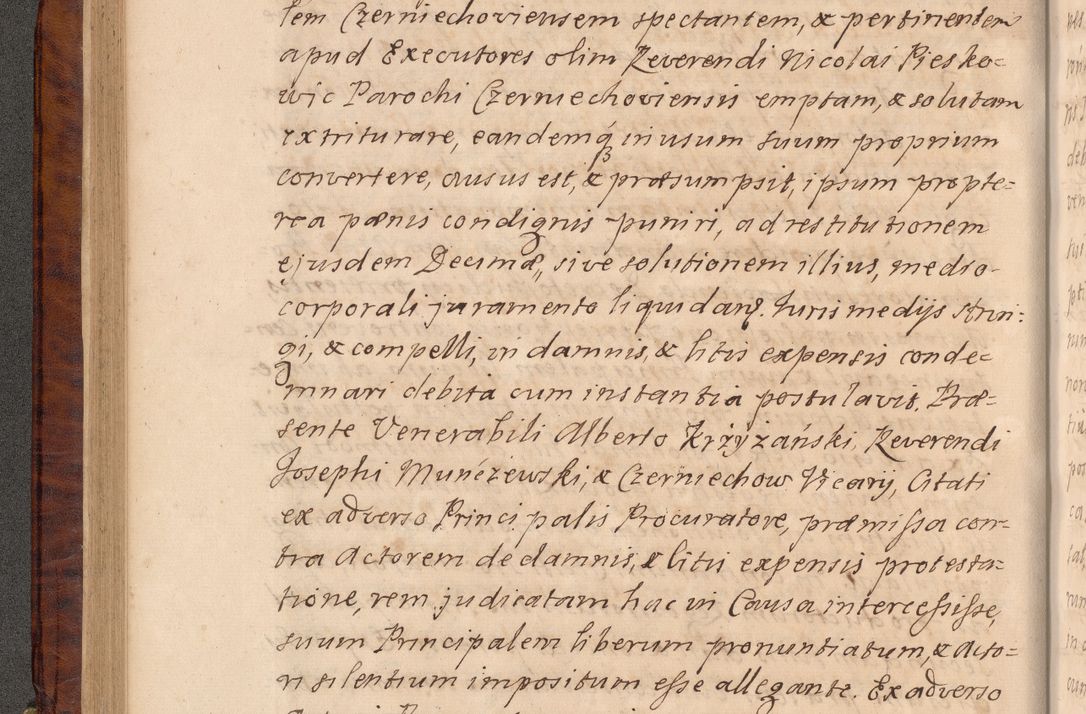 lem Czerniechoviensem spectantem, & pertinentem
apud Executores olim Reverendi Nicolai Piesko=
wic Parochi Czerniechoviensis emptam, & solutam
extriturare, eandemq́ in usum suum proprium
convertere, ausus est, & præsumpsit, ipsum propte=
rea pænis condignis puniri, ad restitutionem
ejusdem Decimæ, sive solutionem illius, medio
corporali juramento liquidanꝭ. Juris medijs strin:
gi, & compelli, in damnis, & litis expensis conde=
mnari debita cum instantia postulavit. Præ=
sente Venerabili Alberto Krzyżański, Reverendi
Josephi Munczewski, & Czerniechow Vicarij, Citati
ex adverso Principalis Procuratore, præmissa con=
tra Actorem de damnis, & litis expensis protesta=
tione, rem judicatam hac in Causa intercessisse,
suum Principalem liberum pronuntiatum, & Acto=
ri silentium impositum esse allegante. Ex adverso